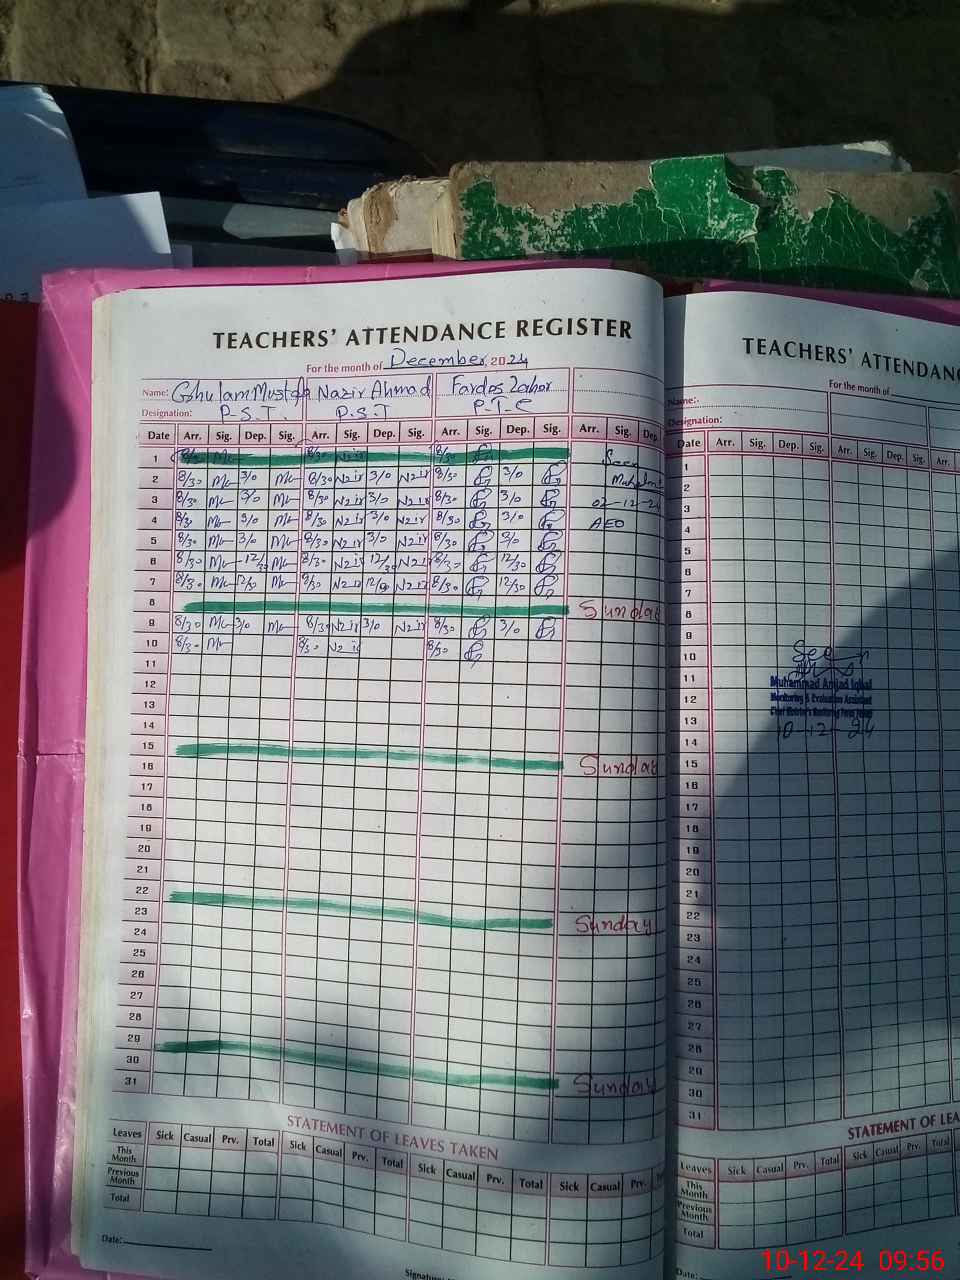 TEACHERS' ATTENDANCE REGISTER
For the month of December, 2024
Name: Ghulam Mustafa Nazir Ahmad Fardos Zahor
Designation: P.S.T. P.S.T P-T-C
Date Arr. Sig. Dep. Sig. Arr. Sig. Dep. Sig. Arr. Sig. Dep. Sig. Arr. Sig. Dep.
1 8/30 8/30 8/30
2 8/30 3/0 8/30 3/0 8/30 3/0
3 8/30 3/0 8/30 3/0 8/30 3/0 02-12-24
4 8/30 3/0 8/30 3/0 8/30 3/0 AEO
5 8/30 3/0 8/30 3/0 8/30 3/0
6 8/30 12/30 8/30 12/30 8/30 12/30
7 8/30 12/30 8/30 12/30 8/30 12/30
8 Sunday
9 8/30 3/0 8/30 3/0 8/30 3/0
10 8/30 8/30 8/30
11
12
13
14
15
16 Sunday
17
18
19
20
21
22
23 Sunday
24
25
26
27
28
29
30 Sunday
31
STATEMENT OF LEAVES TAKEN
Leaves Sick Casual Prv. Total Sick Casual Prv. Total Sick Casual Prv. Total Sick Casual
This Month
Previous Month
Total
Date:
TEACHERS' ATTENDANC
For the month of
Name:
Designation:
Date Arr. Sig. Dep. Sig. Arr. Sig. Dep. Sig. Arr.
1
2
3
4
5
6
7
8
9
10 See
11 Muhammad Amjad Iqbal
12 Monitoring & Evaluation Assistant
13 10-12-24
14
15
16
17
18
19
20
21
22
23
24
25
26
27
28
29
30
31
STATEMENT OF LEA
Leaves Sick Casual Prv. Total Sick Casual Prv. Total
This Month
Previous Month
Total
Date:
10-12-24 09:56